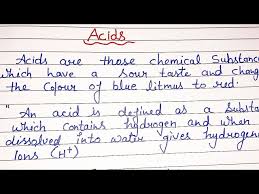 Acids
Acids are those chemical Substanc
which have a Sour taste and chang
the Colour of blue litmus to red.
"An acid is defined as a Substa
which contains hydrogen and when
dissolved into water gives hydrogen
Ions (H+)